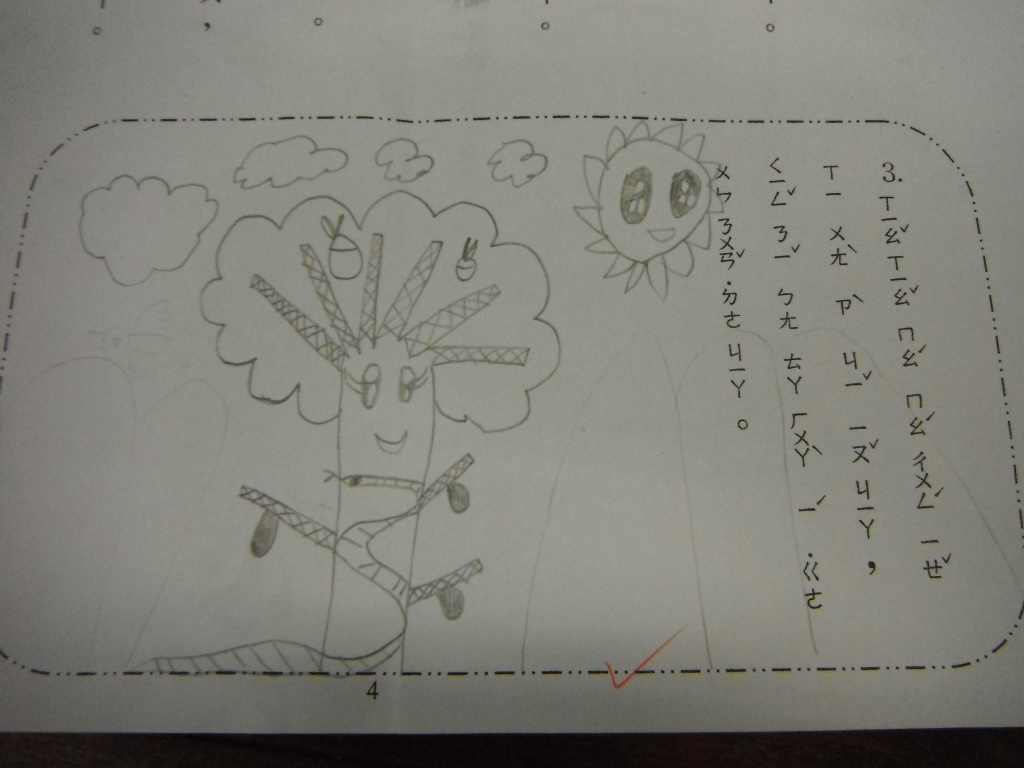 3. ㄒㄧㄠˇ ㄒㄧㄠˇ ㄇㄠˊ ㄇㄠˊ ㄔㄨㄥˊ ㄧㄝˇ
ㄒㄧ ㄨㄤˋ ㄗˋ ㄐㄧˇ ㄧㄡˇ ㄐㄧㄚ，
ㄑㄧㄥˇ ㄋㄧˇ ㄅㄤ ㄊㄚ ㄏㄨㄚˋ ㄧˊ ˙ㄍㄜ
ㄨㄣ ㄋㄨㄢˇ ˙ㄉㄜ ㄐㄧㄚ。
4